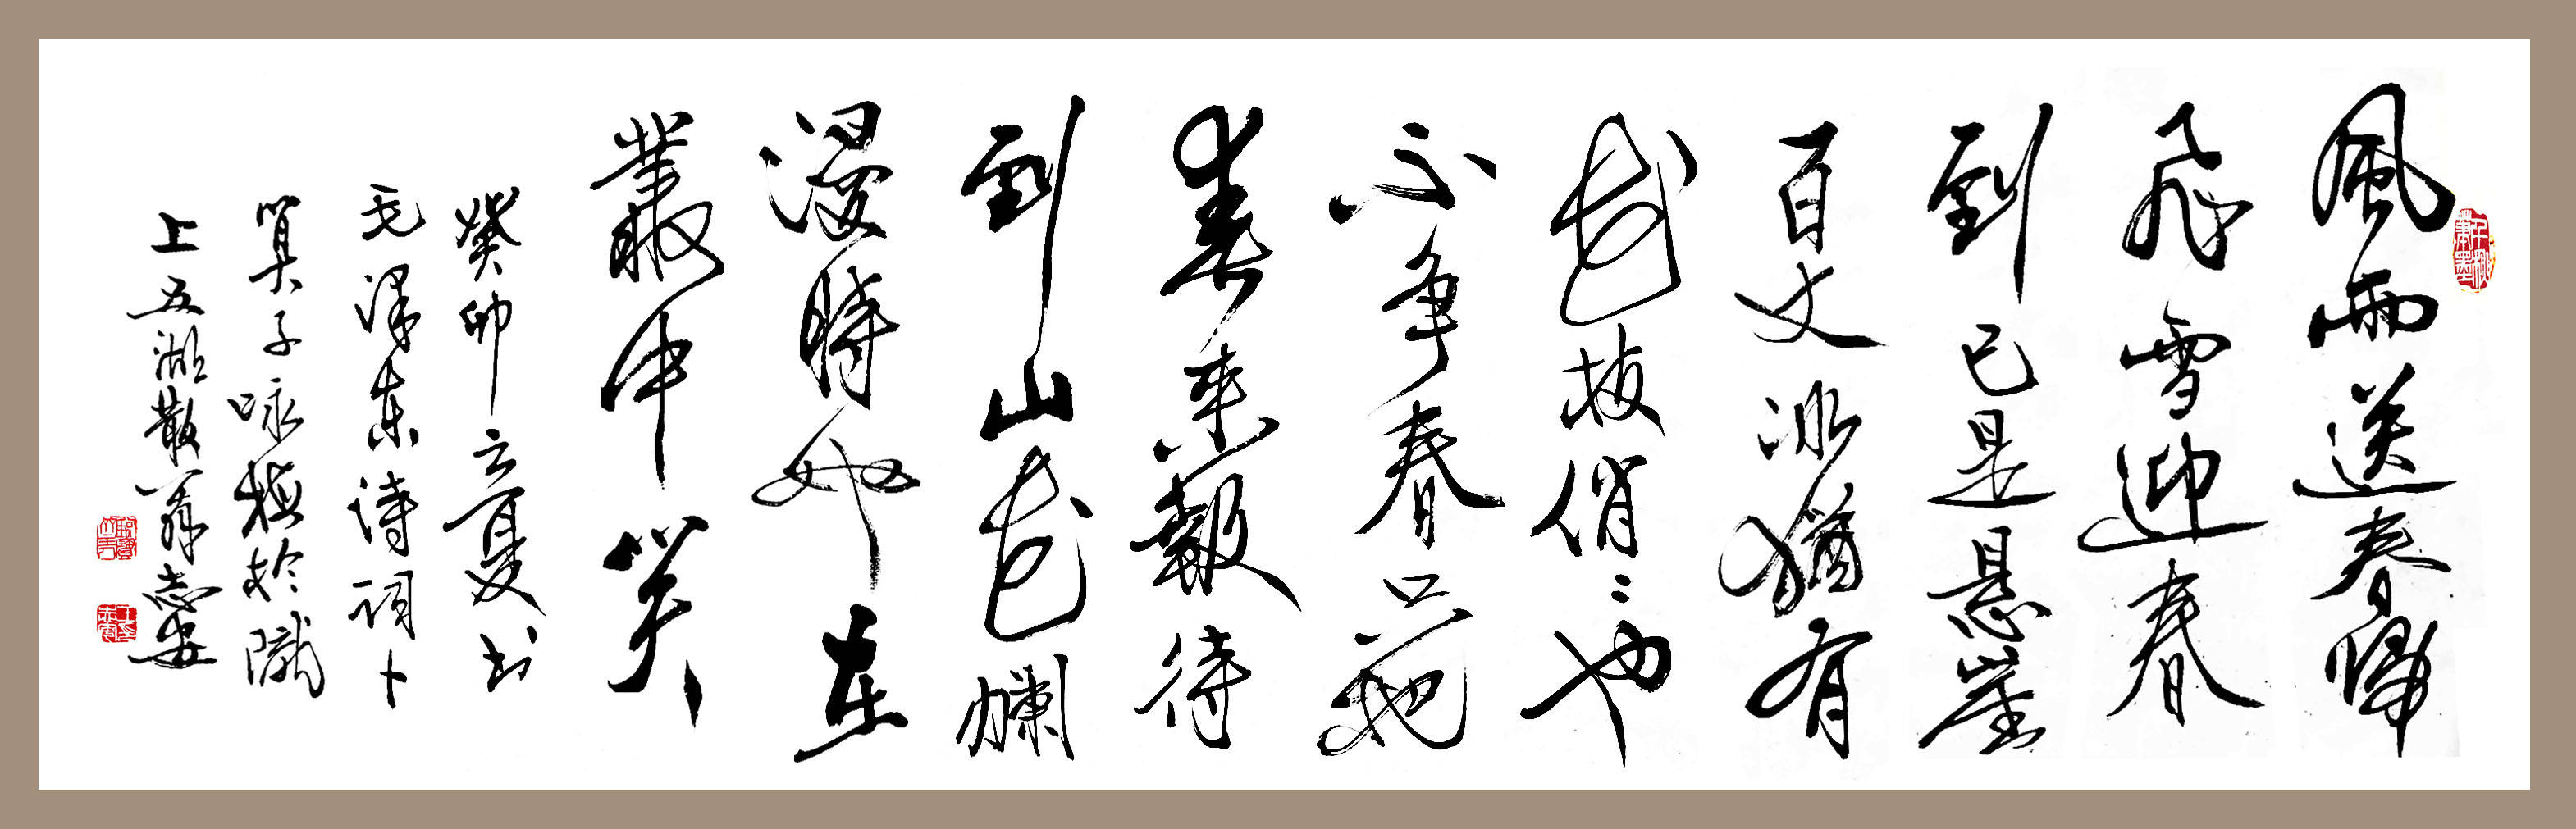 風雨送春歸
飛雪迎春
到已是悬崖
百丈冰猶有
花枝俏〻也
不争春只把
春来報待
到山花爛
漫時她在
叢中笑
癸卯立夏书
毛澤东诗词卜
算子咏梅於隴
上五湖散翁志安